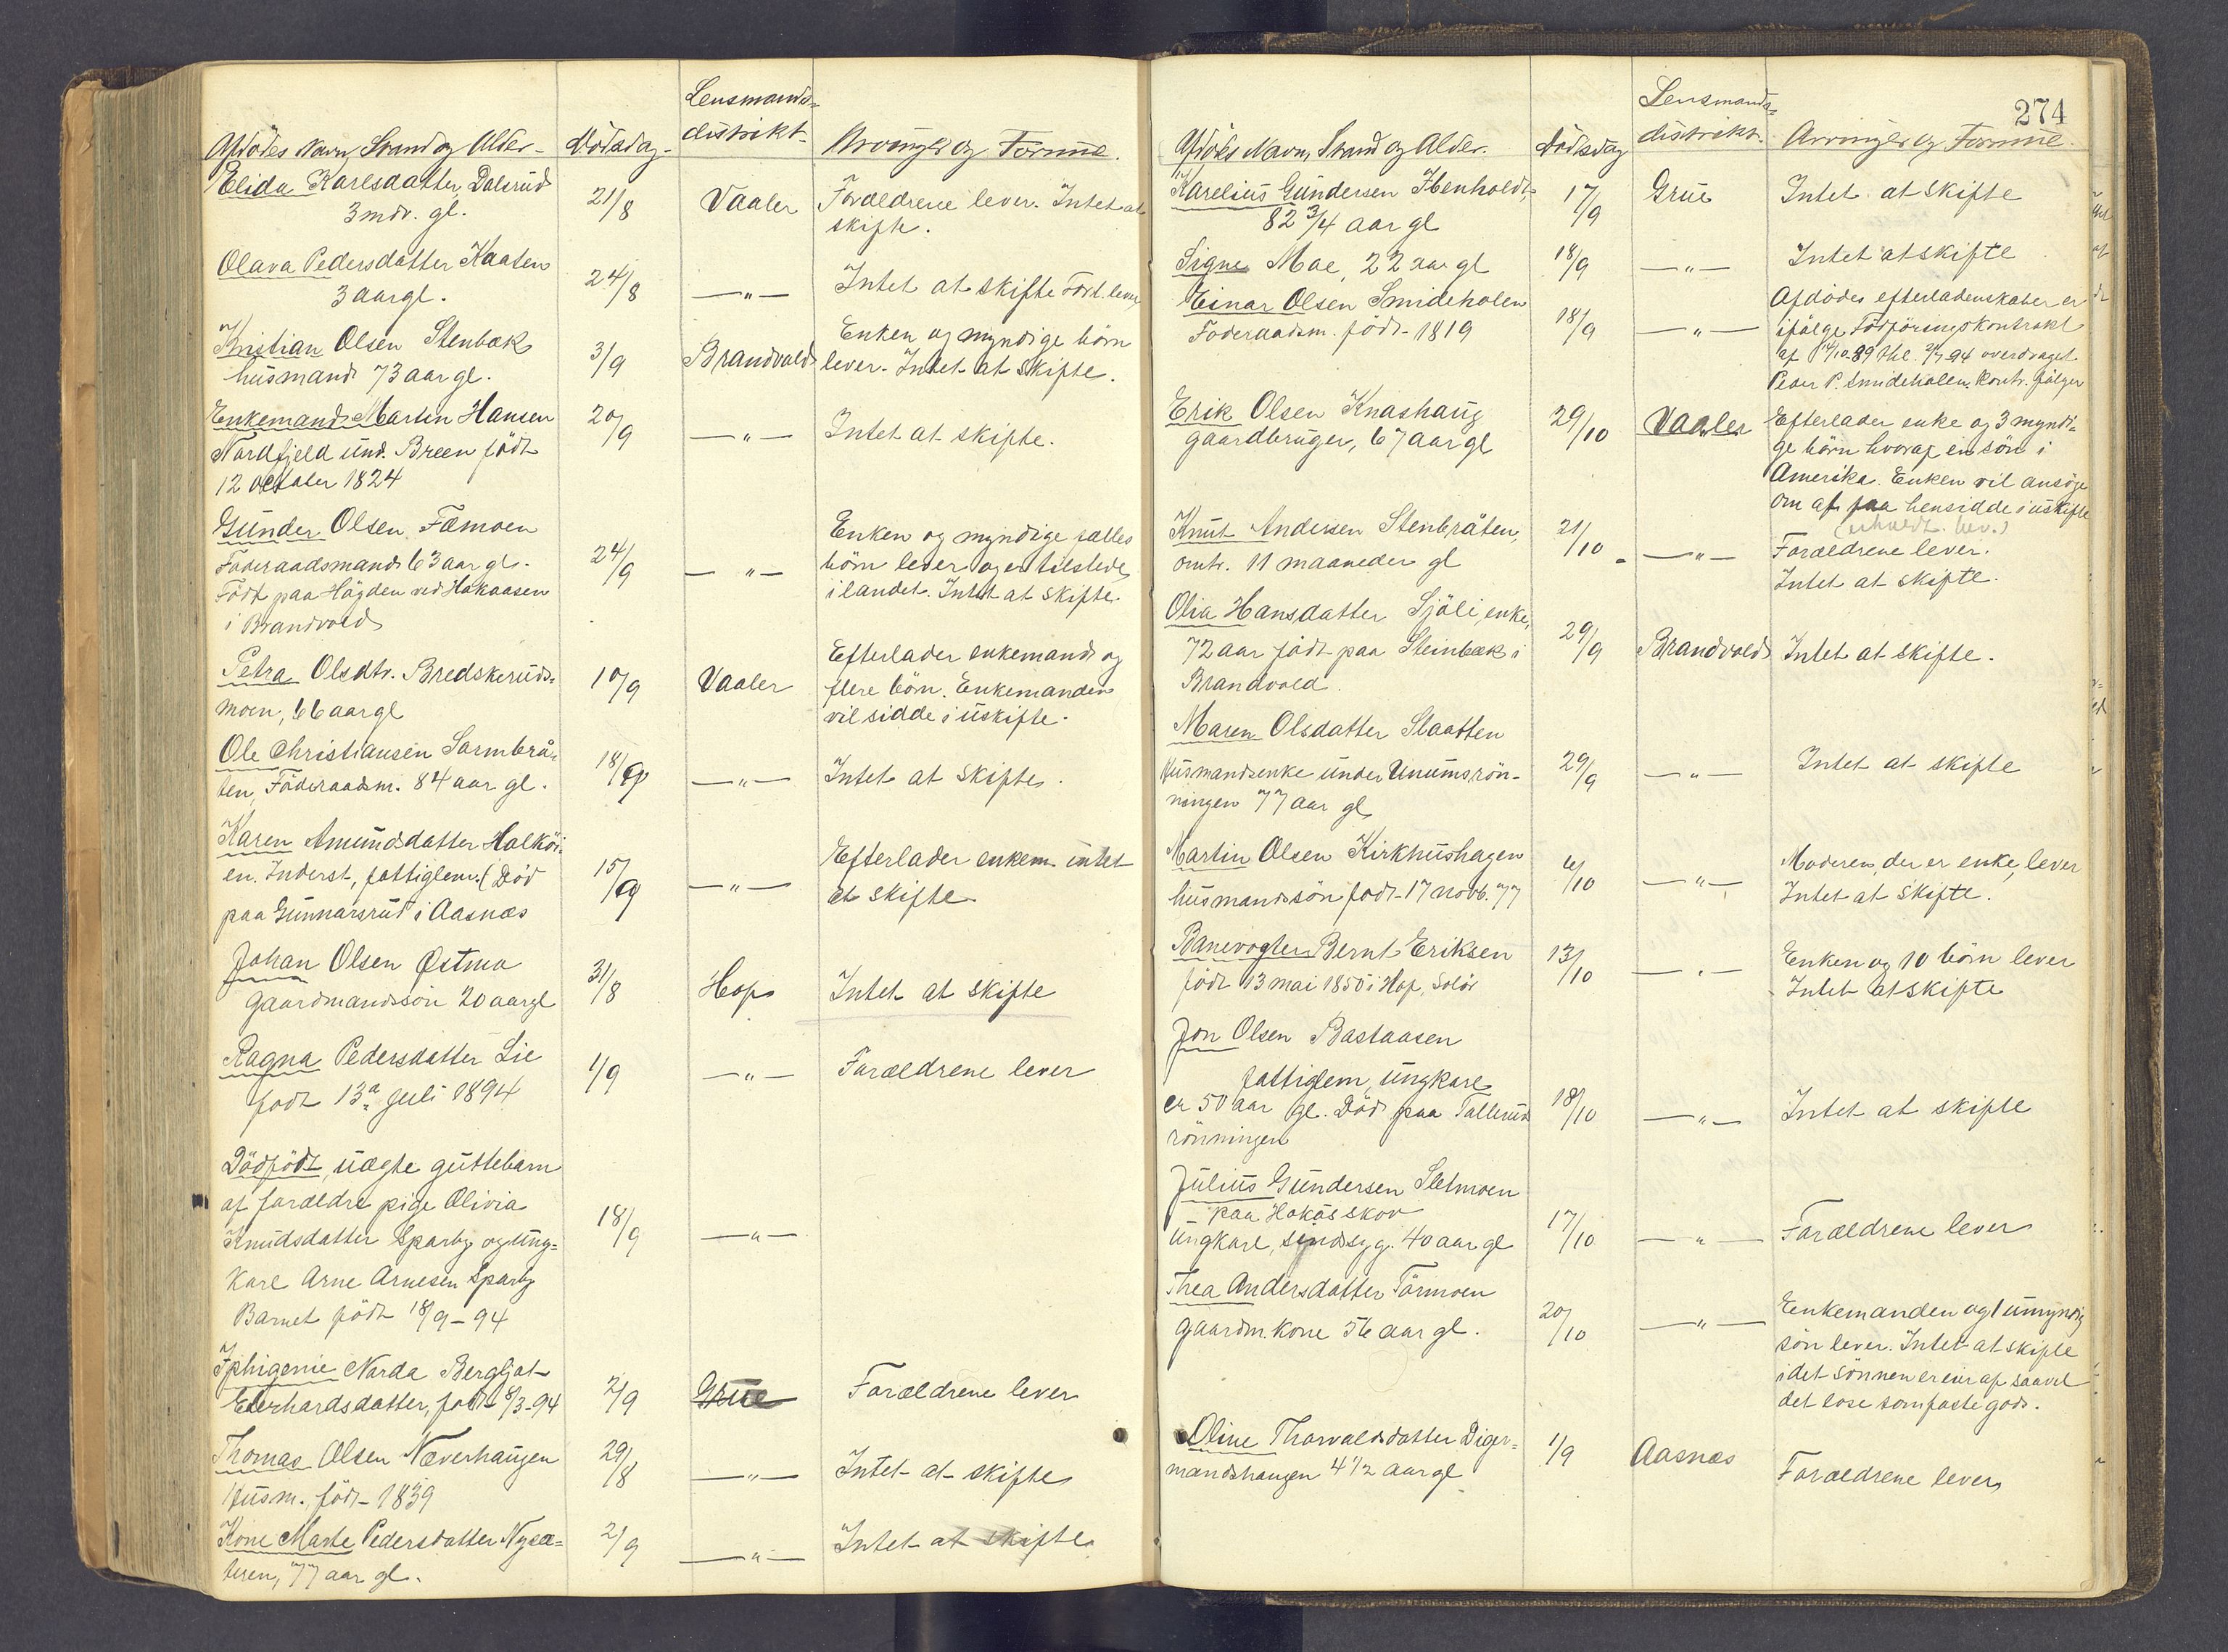 Afdödes Navn, Stand og Alder. Dödsdag. Lensmands-
distrikt. Arvinger og Formue.
Elida Karlsdatter Dalsrud 21/8 Vaaler Forældrene lever. Intet at
3 mdr. gl. skifte.
Olava Pedersdatter Kaaten 24/8 —"— Intet at skifte Foræl. lever
3 aar gl.
Kristian Olsen Stenbæk 3/9 Brandvold Enken og myndige börn
husmand 73 aar gl. lever. Intet at skifte.
Enkemand Martin Hansen 20/9 —"— Intet at skifte.
Nordfjeld und. Breen födt
12 october 1824
Gunder Olsen Fæmoen Enken og myndige fælles
Föderaadsmand 63 aar gl. 24/9 —"— börn lever og er tilstede
Födt paa Högden ved Hokaasen i landet. Intet at skifte.
i Brandvold
Petra Olsdtr. Bredskeruds- 10/9 Vaaler Efterlader enkemand og
moen, 66 aar gl flere börn. Enkemanden
vil sidde i uskifte.
Ole Christiansen Sarmbrå- 18/9 —"— Intet at skifte.
ten, Föderaadsm. 84 aar gl.
Karen Amundsdatter Halköi- 15/9 —"— Efterlader enkem. intet
en. Inderst, fattiglem. (Död at skifte.
paa Gunnarsrud i Aasnæs
Johan Olsen Østmo 31/8 Hof Intet at skifte
gaardmandssön 20 aar gl
Ragna Pedersdatter Lie 1/9 —"— Forældrene lever
födt 13de Juli 1894
Dödfödt, uægte guttebarn
af forældre pige Olivia
Knudsdatter Sparby og ung- 18/9 —"—
karl Arne Arnesen Sparby
Barnet födt 18/9-94
Iphigenie Narda Bergljot 2/9 Grue Forældrene lever
Ederhardsdatter, födt 8/3-94
Thomas Olsen Næverhaugen 29/8 —"— Intet at skifte
Husm. födt 1839
Kone Marte Pedersdatter Nysæ- 2/9 —"— Intet at skifte
teren, 77 aar gl.
274
Afdödes Navn, Stand og Alder. Dödsdag Lensmands-
distrikt. Arvinger og Formue.
Karelius Gundersen Ibenholdt, 17/9 Grue Intet at skifte
82 3/4 aar gl
Signe Moe, 22 aar gl 18/9 —"— Intet at skifte
Einar Olsen Smideholen 18/9 —"— Afdödes efterladenskaber er
Föderaadsm. födt 1819 ifölge Födföringskontrakt
af 14/10 89 thl. 2/7 94 overdraget
Peder P. Smideholen. Kontr. fölger
Erik Olsen Knashaug 29/10 Vaaler Efterlader enke og 3 myndi-
gaardbruger, 67 aar gl ge börn hvoraf en sön i
Amerika. Enken vil ansöge
om at faa hensidde i uskifte
(erholdt bev.)
Knut Andersen Stenbråten, 21/10 —"— Forældrene lever.
omtr. 11 maaneder gl Intet at skifte.
Olia Hansdatter Sjöli, enke,
72 aar födt paa Steinbæk i 29/9 Brandvold Intet at skifte.
Brandvold.
Maren Olsdatter Slaatten
Husmandsenke under Unumsrön- 29/9 —"— Intet at skifte
ningen 77 aar gl
Martin Olsen Kirkhushagen 6/10 —"— Moderen, der er enke, lever
husmandssön födt 17 novb. 77 Intet at skifte.
Banevogter Bernt Eriksen 13/10 —"— Enken og 10 börn lever
födt 13 mai 1850 i Hof, Solör Intet at skifte
Jon Olsen Bastaasen
fattiglem, ungkarl
er 50 aar gl. Död paa Tallerud 18/10 —"— Intet at skifte
rönningen
Julius Gundersen Sletmoen
paa Hokåsskov 17/10 —"— Forældrene lever
ungkarl, sindssyg. 40 aar gl
Thea Andersdatter Törmoen 20/10 —"— Enkemanden og 1 umyndig
gaardm. kone 56 aar gl. sön lever. Intet at skifte
idet sönnen er eier af saavel
det löse som faste gods.
Oline Thorvaldsdatter Diger- 1/9 Aasnæs Forældrene lever
mandshaugen 4 1/2 aar gl